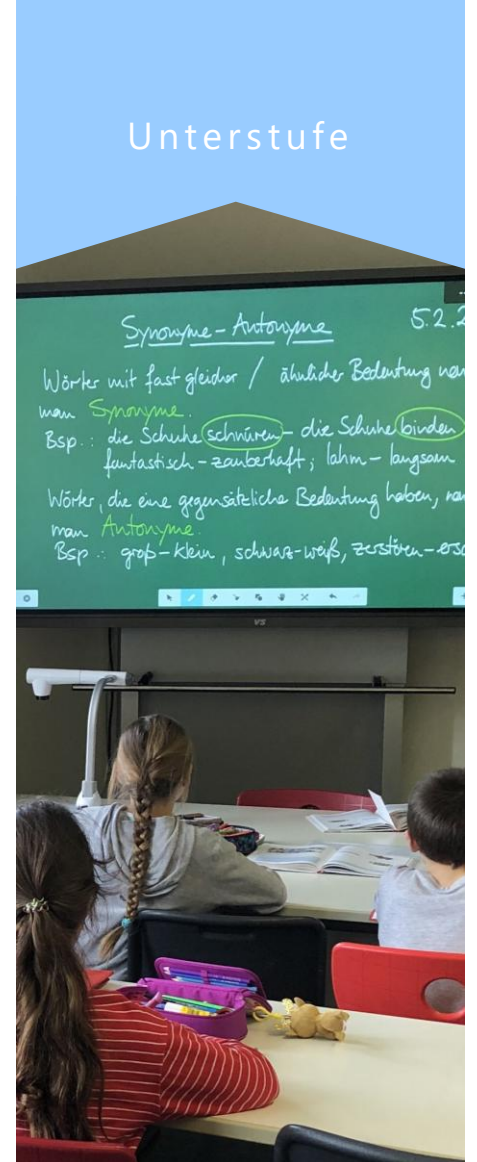 Unterstufe
Synonyme - Antonyme 5.2.2
Wörter mit fast gleicher / ähnlicher Bedeutung nen
man Synonyme.
Bsp.: die Schuhe schnüren - die Schuhe binden
fantastisch - zauberhaft; lahm - langsam
Wörter, die eine gegensätzliche Bedeutung haben, ne
man Antonyme.
Bsp.: groß - klein, schwarz - weiß, zerstören - ersc
VS